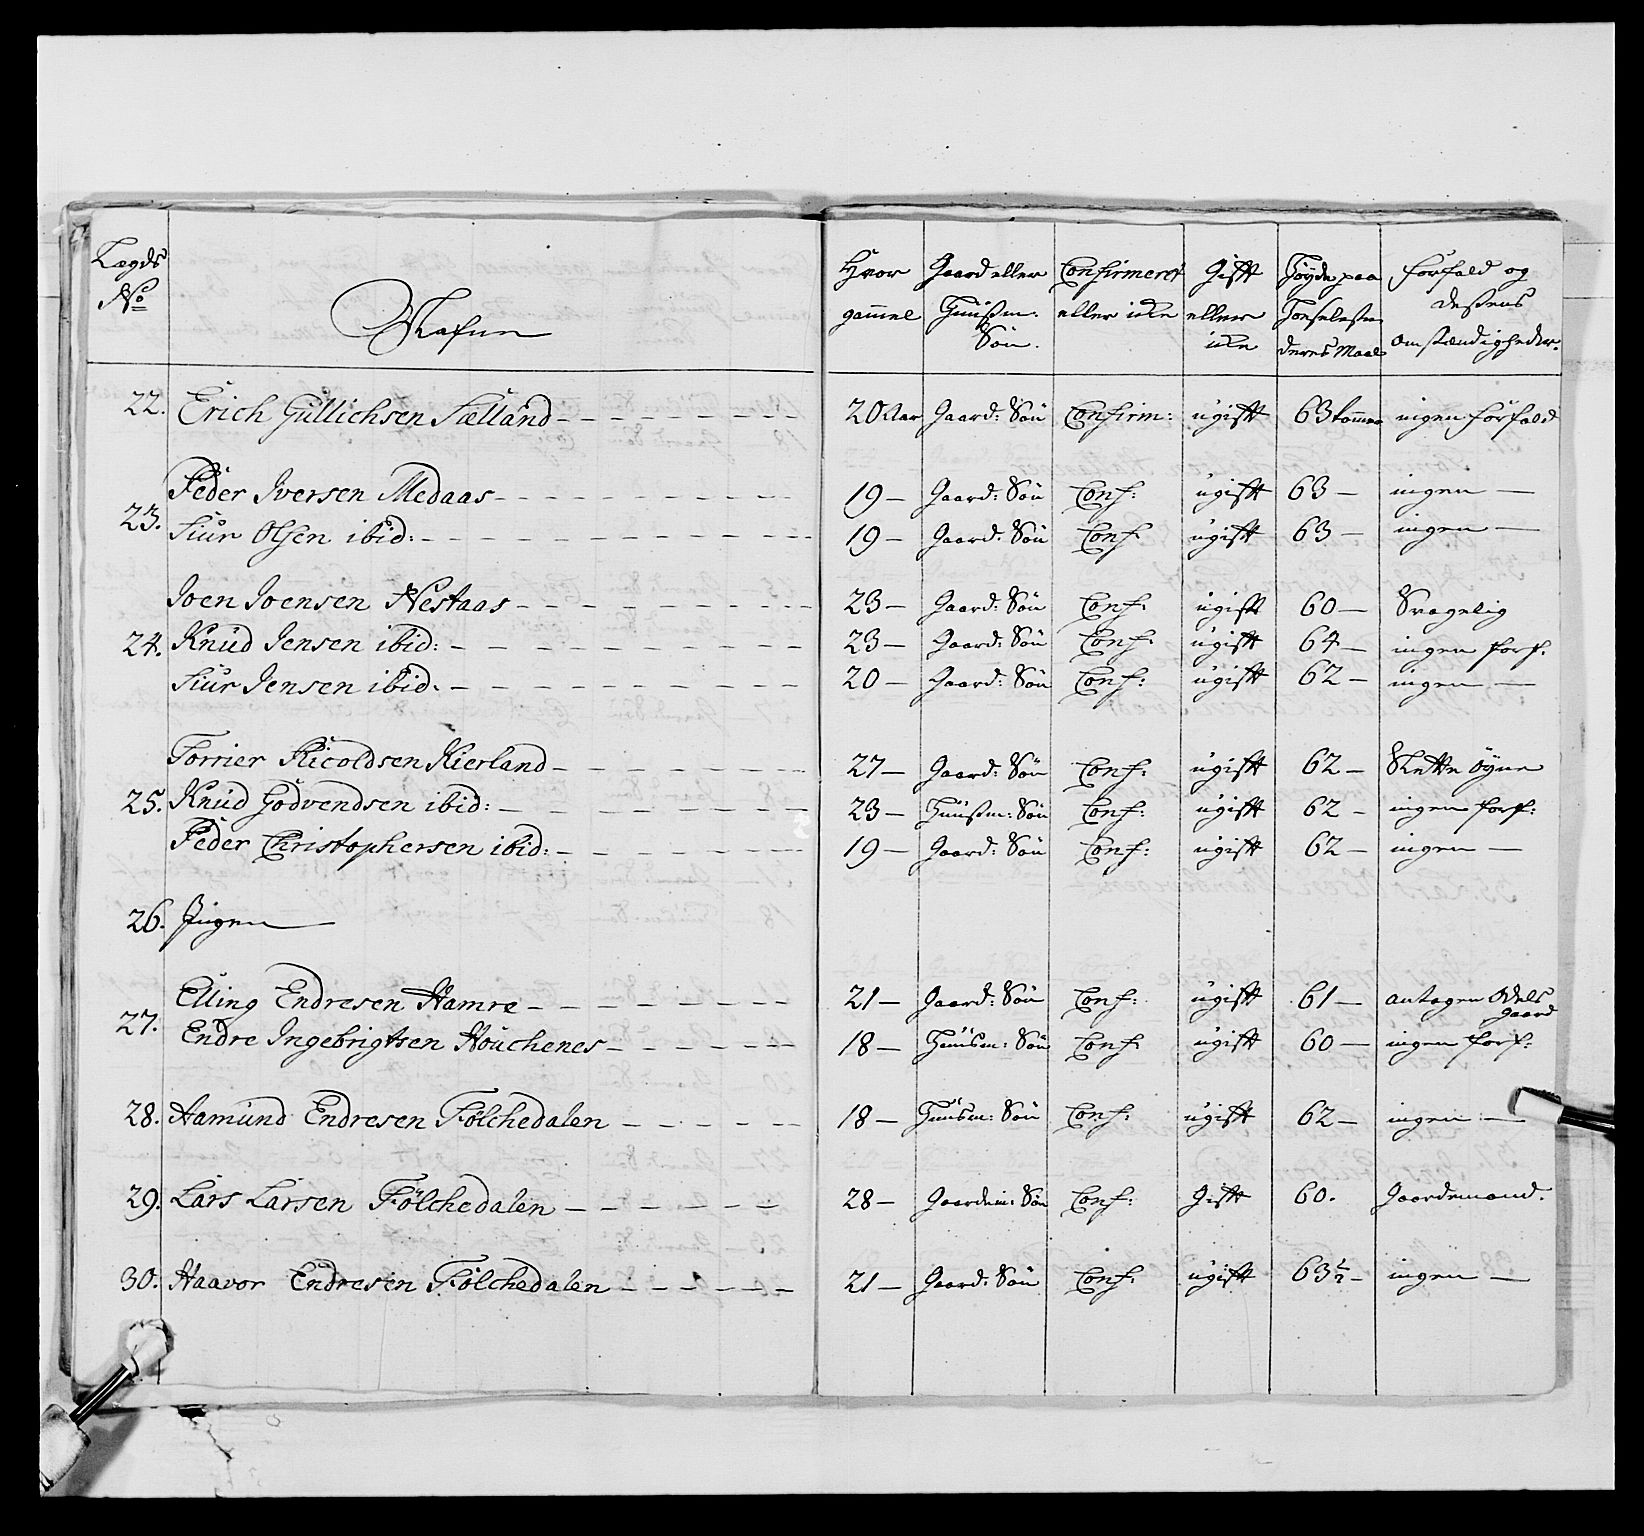 Lægds No Nafn Hvor gammel Gaard eller Huusm: Søn. Confirmeret eller icke Gift eller icke Høyde paa Tonselesten deres Maal Forfald og deßens omstændigheder.
22. Erich Gullichsen Sælland 20 Aar Gaard: Søn Confirm: ugift 63 tomme ingen forfald
Peder Iversen Medaas 19 — Gaard: Søn Conf: ugift 63 — ingen —
23. Siur Olsen ibid: 19 — Gaard: Søn Conf: ugift 63 — ingen —
Joen Joensen Nestaas 23 — Gaard: Søn Conf: ugift 60 — Svagelig
24. Knud Jensen ibid: 23 — Gaard: Søn Conf: ugift 64 — ingen forf.
Siur Jensen ibid. 20 — Gaard: Søn Conf: ugift 62 — ingen —
Torrier Ricoldsen Kierland 27 — Gaard: Søn Conf: ugift 62 — Slette Øyne
25. Knud Godvendsen ibid: 23 — Huusm: Søn Conf: ugift 62 — ingen forf:
Peder Christophersen ibid: 19 — Gaard: Søn Conf: ugift 62 — ingen —
26. Ingen
Elling Endresen Hamre 21 — Gaard: Søn Conf: ugift 61 — antagen Odels gaard
27. Endre Ingebrigtsen Houchenes 18 — Huusm: Søn Conf: ugift 60 — ingen forf:
28. Aamund Endresen Følchedalen 18 — Huusm: Søn Conf: ugift 62 — ingen —
29. Lars Larsen Følchedalen 28 — Gaardm: Søn Conf: Gift 60. Gaardemand.
30. Haavor Endresen Følchedalen 21 — Gaard: Søn Conf: ugift 63½ — ingen —